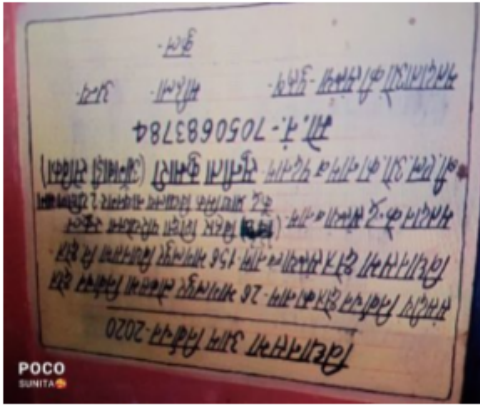 विधानसभा आम निर्वाचन-2020
संसदीय निर्वाचन क्षेत्र का नाम- 26 भागलपुर लोकसभा निर्वाचन क्षेत्र
विधानसभा क्षेत्र संख्या व नाम- 156 भागलपुर विधानसभा क्षेत्र
मतदान केन्द्र संख्या व नाम-
बी.एल.ओ. का नाम व पदनाम- सुनीता कुमारी (आंगनबाड़ी सेविका)
मो. नं.- 7050683784
मतदाताओं की संख्या- पुरुष- महिला- अन्य-
कुल-
POCO
SUNITA🥰